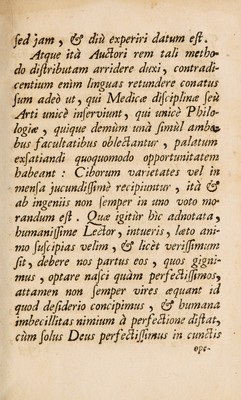 sed jam, & diù experiri datum est.
Atque ità Auctori rem tali metho-
do distributam arridere duxi, contradi-
centium enim linguas retundere conatus
sum adeò ut, qui Medicæ disciplinæ seù
Arti unicè inserviunt, qui unicè Philo-
logiæ, quique demùm unà simùl amba-
bus facultatibus oblectantur, palatum
exsatiandi quoquomodo opportunitatem
habeant: Ciborum varietates vel in
mensa jucundissimè recipiuntur, ità &
ab ingeniis non semper in uno voto mo-
randum est. Quæ igitùr hìc adnotata,
humanissime Lector, intueris, læto ani-
mo suscipias velim, & licèt verissimum
sit, debere nos partus eos, quos gigni-
mus, optare nasci quàm perfectissimos,
attamen non semper vires æquant id
quod desiderio concipimus, & humana
imbecillitas nimium à perfectione distat,
cùm solus Deus perfectissimus in cunctis
ope-